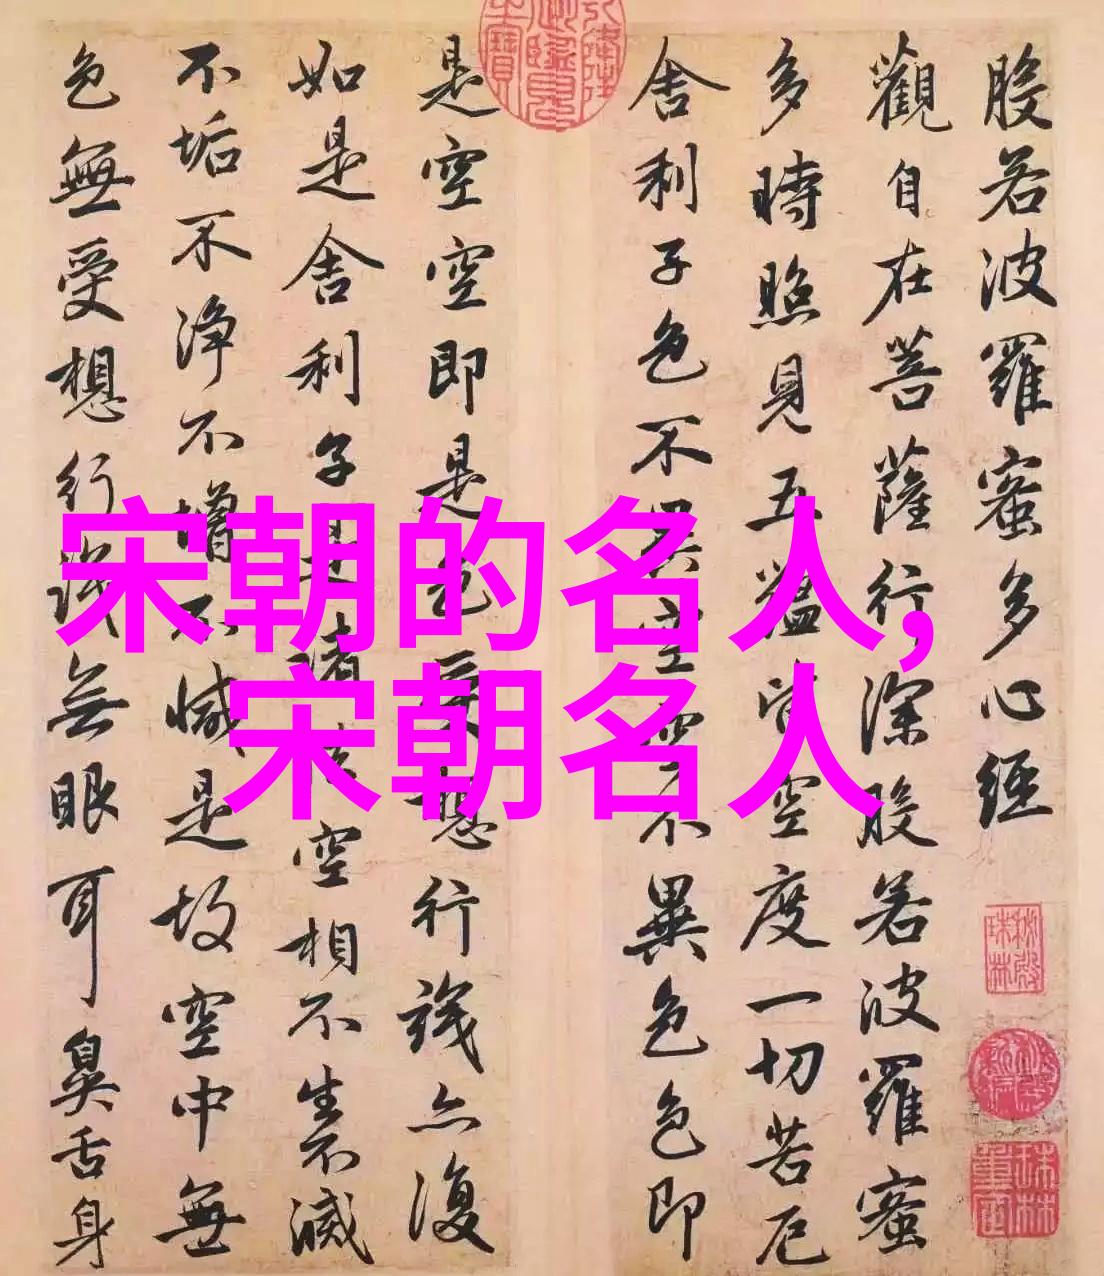 般若波羅蜜多心經
觀自在菩薩行深般若波羅蜜
多時照見五蘊皆空度一切苦厄
舍利子色不異空空不異色色即
是空空即是色受想行識亦復
如是舍利子是諸法空相不生不滅
不垢不净不增不減是故空中無
色無受想行識無眼耳鼻舌身
宋朝的名人,
宋朝名人
秘殿珠林
珠林重定